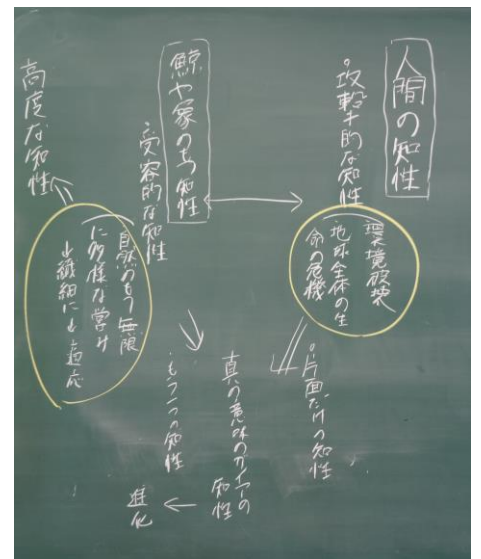 人間の知性
・攻撃的な知性
環境破壊
地球全体の生
命の危機
・片面だけの知性
鯨や象のもつ知性
・受容的な知性
自然のもつ無限
に多様な学け
繊細に
適応
高度な知性
真の意味の
の
知性
・もう一つの知性
進化